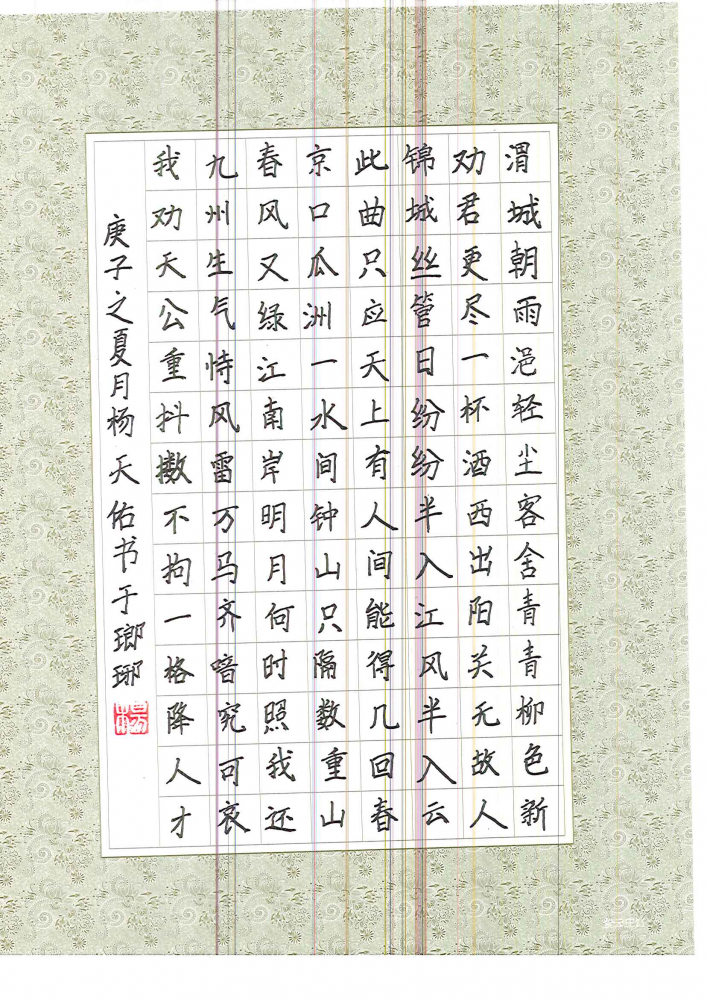 渭城朝雨浥轻尘客舍青青柳色新
劝君更尽一杯酒西出阳关无故人
锦城丝管日纷纷半入江风半入云
此曲只应天上有人间能得几回春
京口瓜洲一水间钟山只隔数重山
春风又绿江南岸明月何时照我还
九州生气恃风雷万马齐喑究可哀
我劝天公重抖擞不拘一格降人才
庚子之夏月杨天佑书于瑯琊